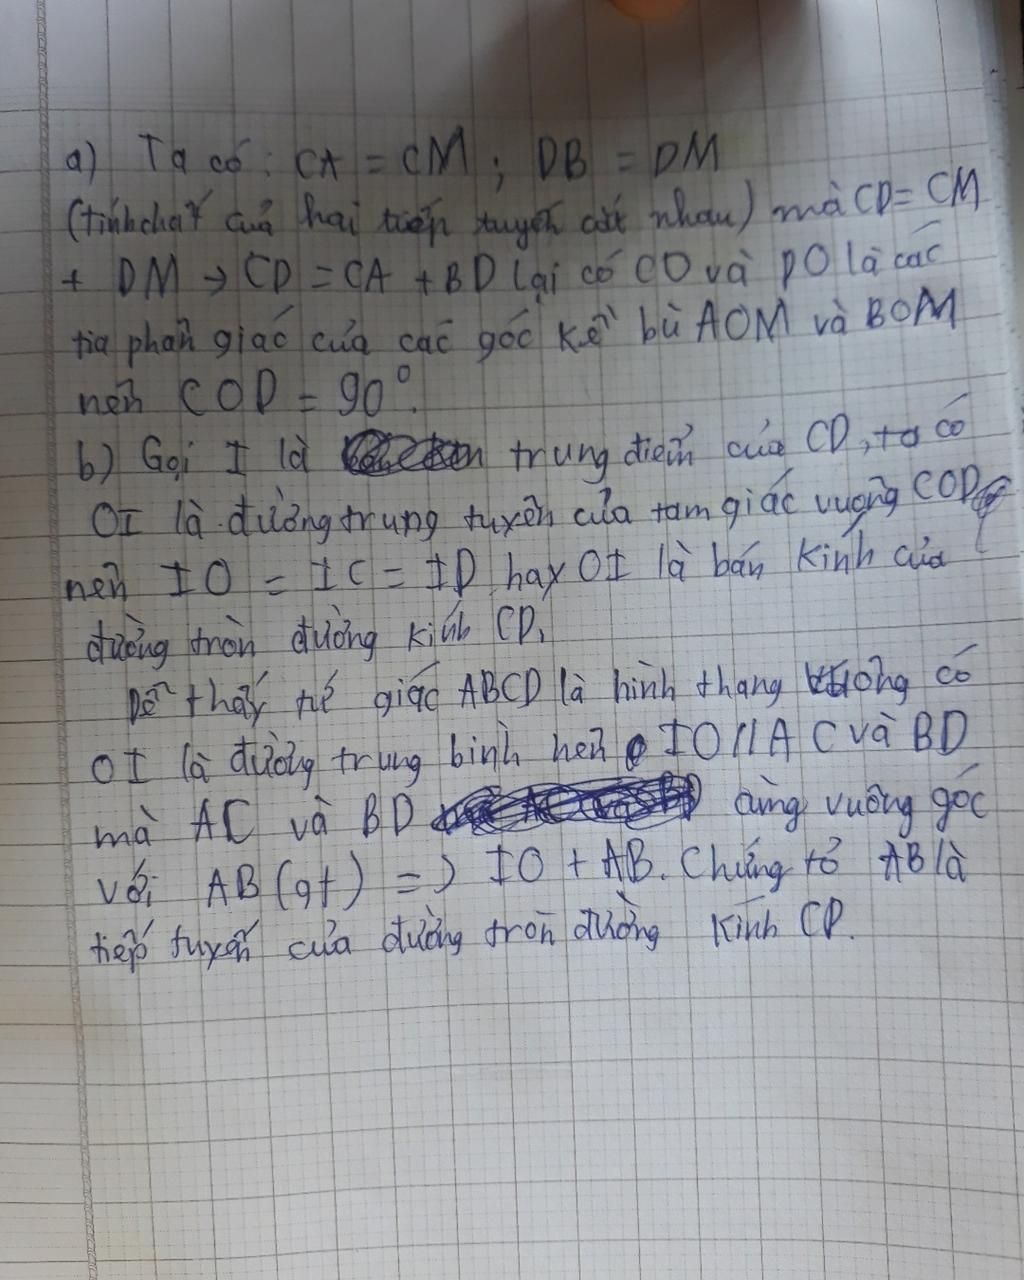 a) Ta có: CA = CM; DB = DM
(tính chất của hai tiếp tuyến cắt nhau) mà CD = CM
+ DM → CD = CA + BD lại có CO và DO là các
tia phân giác của các góc kề bù AOM và BOM
nên COD = 90°.
b) Gọi I là trung điểm của CD, ta có
OI là đường trung tuyến của tam giác vuông COD
nên IO = IC = ID hay OI là bán kính của
đường tròn đường kính CD.
Dễ thấy tứ giác ABCD là hình thang vuông có
OI là đường trung bình nên IO // AC và BD
mà AC và BD cùng vuông góc
với AB (gt) => IO + AB. Chứng tỏ AB là
tiếp tuyến của đường tròn đường kính CD.